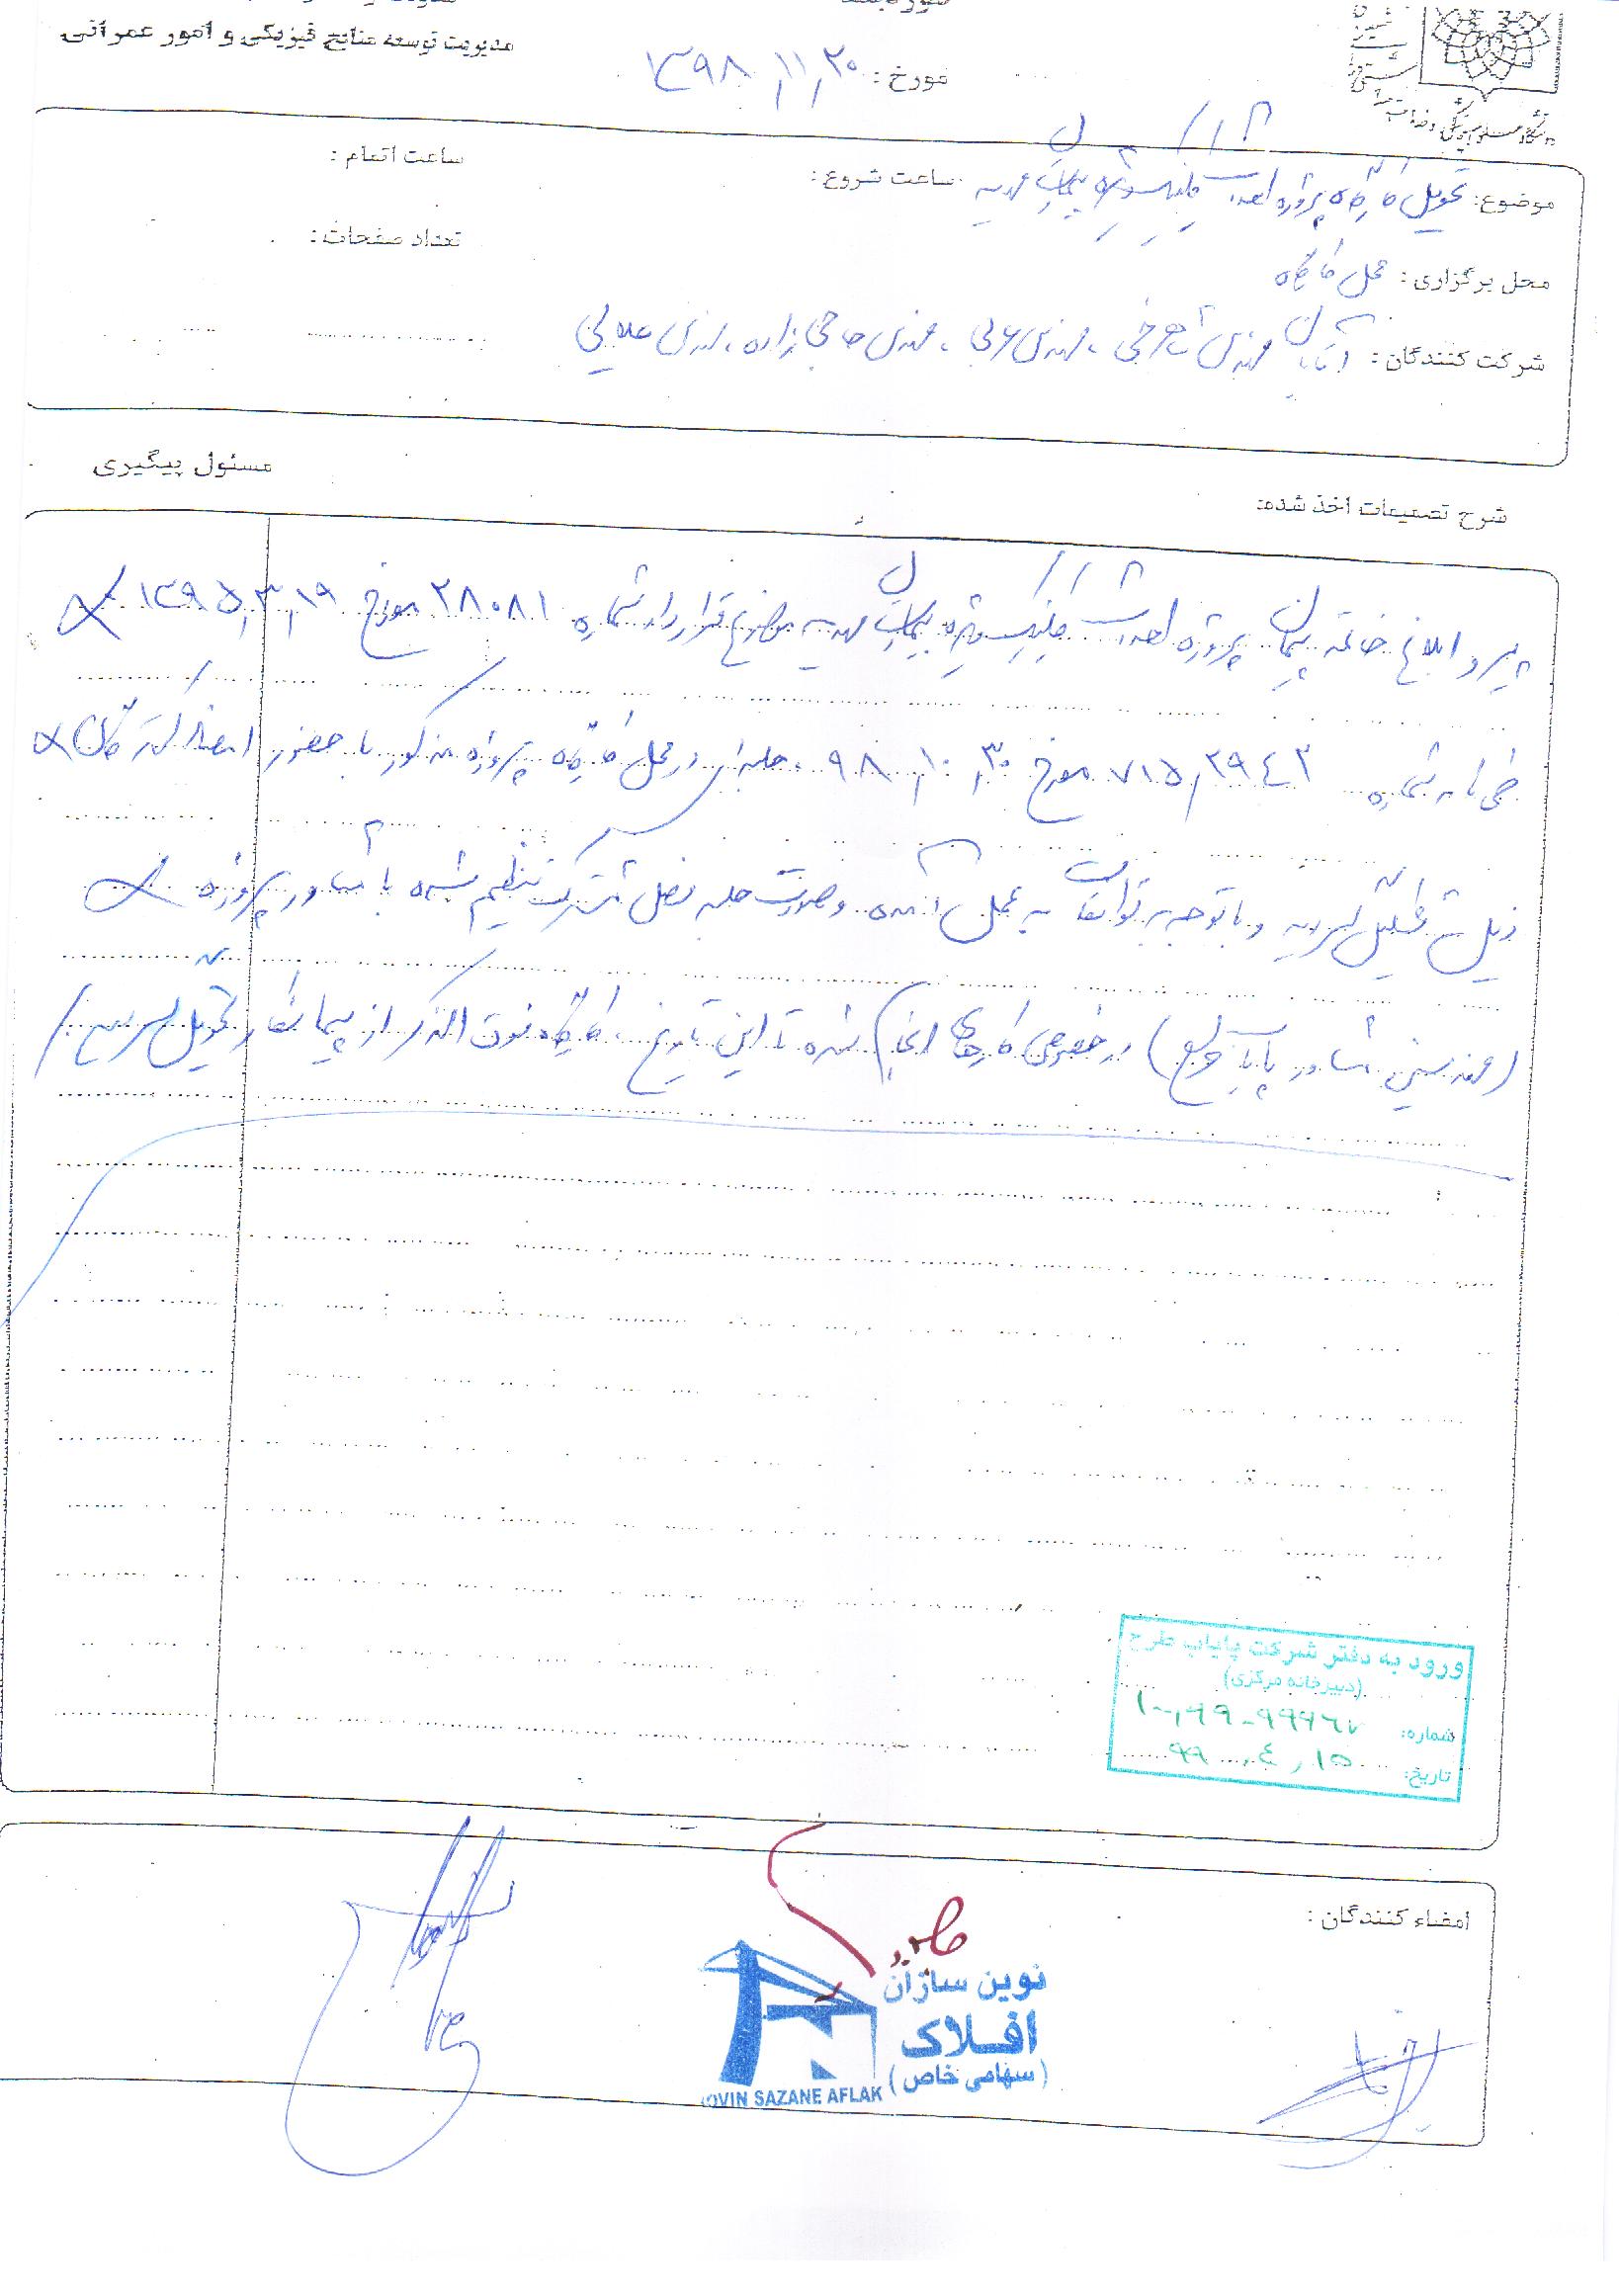 مدیریت توسعه منابع فیزیکی و امور عمرانی
مورخ: ۱۳۹۸/۱۱/۲۰
موضوع: تحویل کارگاه پروژه احداث کلینیک ویژه بیمارستان مهدیه
ساعت شروع:
ساعت اتمام:
محل برگزاری: محل کارگاه
تعداد صفحات:
شرکت کنندگان: آقایان مهندس شاهرخی، مهندس عربی، مهندس حاجی زاده، مهندس علایی
شرح تصمیمات اخذ شده:
مسئول پیگیری
پیرو ابلاغ خاتمه پیمان پروژه احداث کلینیک ویژه بیمارستان مهدیه موضوع قرارداد شماره ۲۸۰۸۱ مورخ ۱۳۹۵/۳/۱۹
طی نامه شماره ۷۱۵/۲۹۴۳ مورخ ۹۸/۱۰/۳۰، جلسه‌ای در محل کارگاه پروژه مذکور با حضور امضا کنندگان
ذیل تشکیل گردید و با توجه به توافقات به عمل آمده و صورت جلسه فصل مشترک تنظیم شده با مشاور پروژه
(مهندسین مشاور پایاب طرح) در خصوص کارهای انجام شده تا این تاریخ، کارگاه فوق الذکر از پیمانکار تحویل گردید.
ورود به دفتر شرکت پایاب طرح
(دبیرخانه مرکزی)
شماره:
تاریخ: ۹۹/۴/۱۵
امضاء کنندگان:
نوین سازان
افلاک
(سهامی خاص)
OVIN SAZANE AFLAK